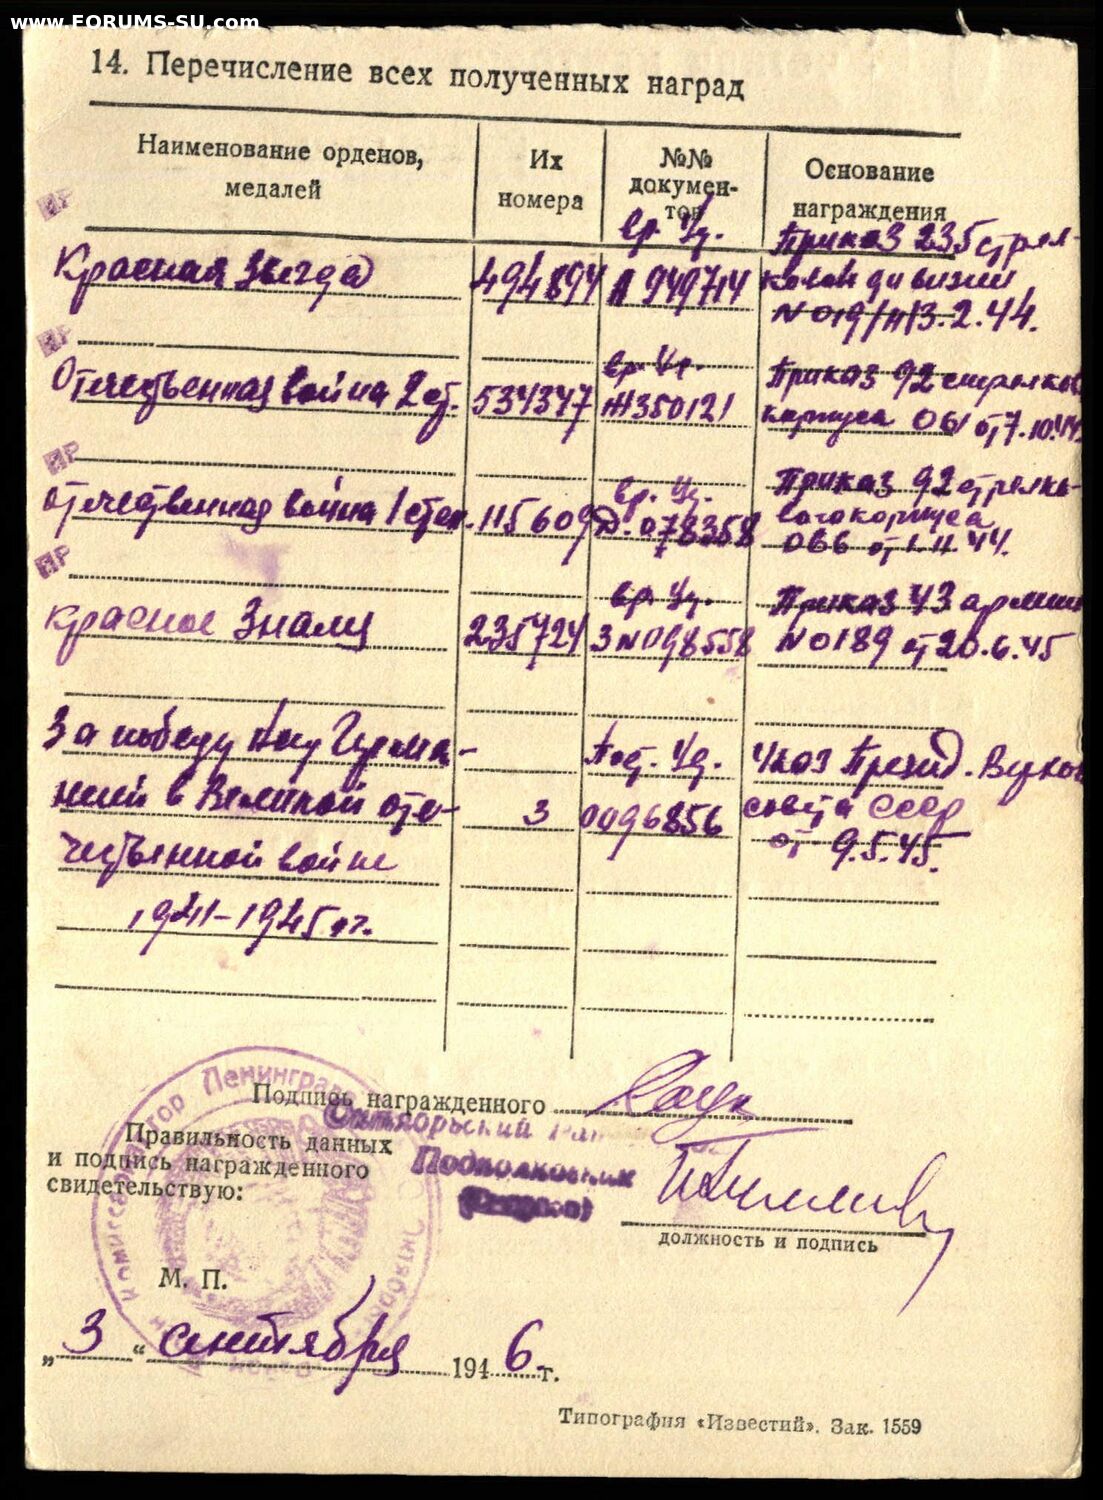 www.FORUMS-SU.com
14. Перечисление всех полученных наград
Наименование орденов, медалей
Их номера
№№ документов
Основание награждения
ПР
Красная Звезда 494894 вр. Уд. А 949714 Приказ 235 стрел-
ковой дивизии
N 019/н 13.2.44.
ПР
Отечественная война 2 ст. 534347 вр. Уд. Ж350121 Приказ 92 стрелков
корпуса 061 от 7.10.44
ПР
Отечественная война 1 степ. 115609 вр. Уд. Д. 078358 Приказ 92 стрелко-
вого корпуса
066 от 1.11.44.
ПР
Красное Знамя 235724 вр. Уд. З N 098558 Приказ 43 армии
N 0189 от 20.6.45
За победу над Герма-
нией в Великой оте-
чественной войне
1941-1945 гг.
З
Пост. Уд.
0096856
Указ Презид. Верхов
совета СССР
от 9.5.45.
Подпись награжденного
Октябрьский
Правильность данных
и подпись награжденного
свидетельствую:
Подполковник
должность и подпись
М. П.
„3“ сентября 1946 г.
Типография «Известий». Зак. 1559